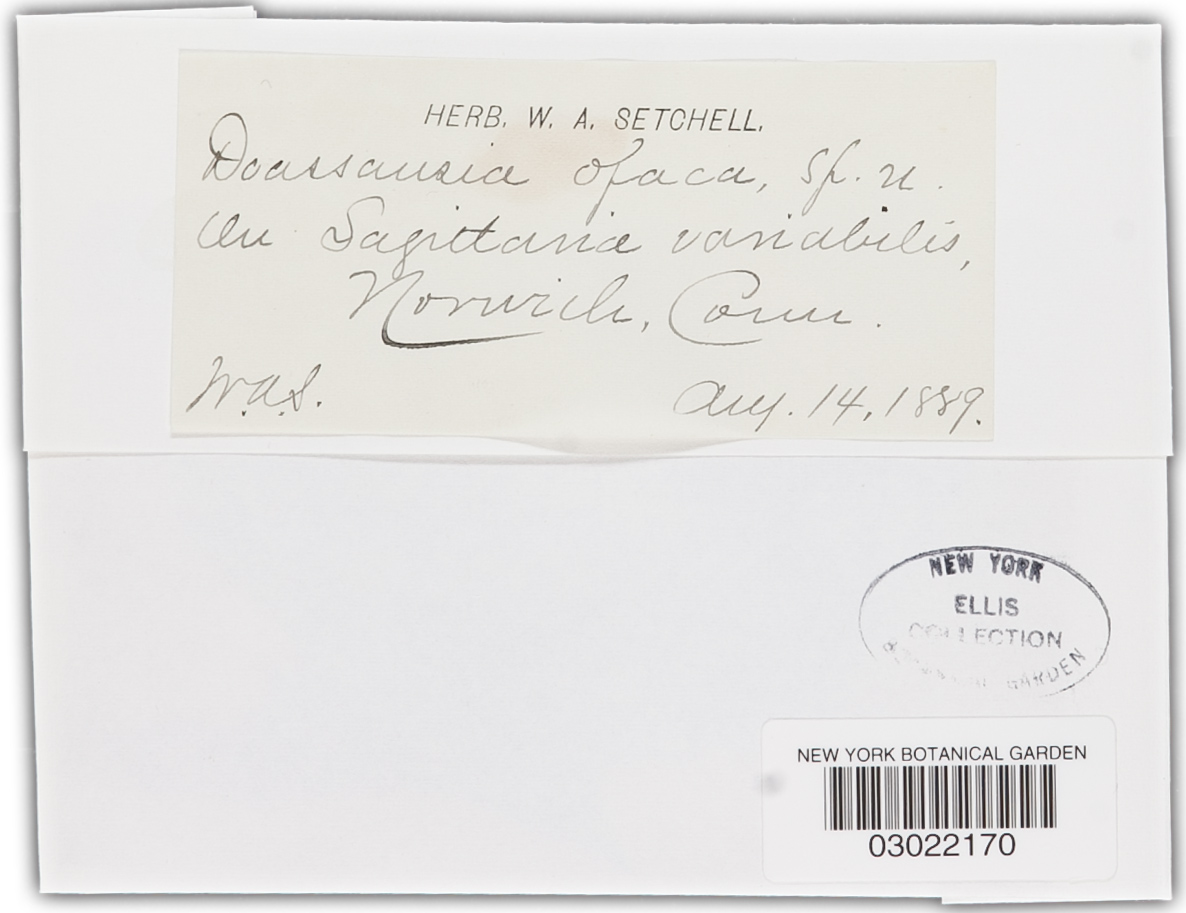 HERB. W. A. SETCHELL.
Doassansia opaca, sp. n.
On Sagittaria variabilis,
Norwich, Conn.
W.A.S. Aug. 14, 1889.
NEW YORK
ELLIS
COLLECTION
BOTANICAL GARDEN
NEW YORK BOTANICAL GARDEN
03022170